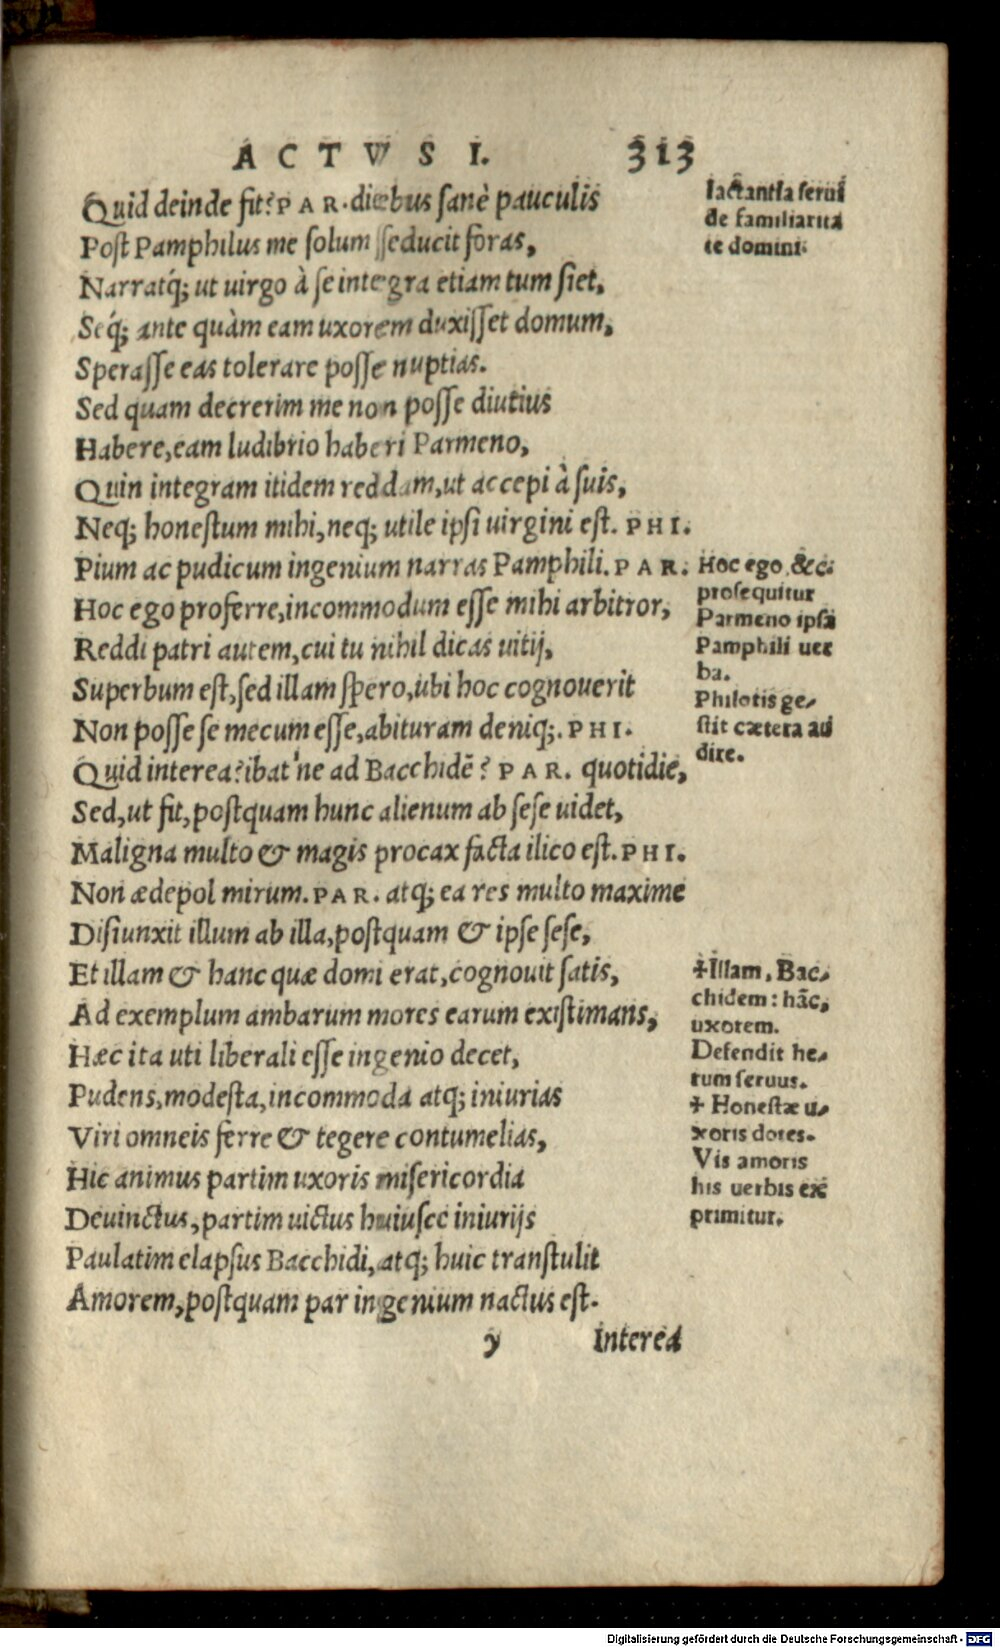 ACTVS I. 313
Quid deinde fit? PAR. diebus sanè pauculis
Post Pamphilus me solum seducit foras,
Narratq́; ut uirgo à se integra etiam tum siet,
Seq́; ante quàm eam uxorem duxisset domum,
Sperasse eas tolerare posse nuptias.
Sed quam decrerim me non posse diutius
Habere, eam ludibrio haberi Parmeno,
Quin integram itidem reddam, ut accepi à suis,
Neq; honestum mihi, neq; utile ipsi uirgini est. PHI.
Pium ac pudicum ingenium narras Pamphili. PAR.
Hoc ego proferre, incommodum esse mihi arbitror,
Reddi patri autem, cui tu nihil dicas uitij,
Superbum est, sed illam spero, ubi hoc cognouerit
Non posse se mecum esse, abituram deniq;. PHI.
Quid interea? ibat'ne ad Bacchidē? PAR. quotidie,
Sed, ut fit, postquam hunc alienum ab sese uidet,
Maligna multo & magis procax facta ilico est. PHI.
Non ædepol mirum. PAR. atq; ea res multo maxime
Disiunxit illum ab illa, postquam & ipse sese,
Et illam & hanc quæ domi erat, cognouit satis,
Ad exemplum ambarum mores earum existimans,
Hæc ita uti liberali esse ingenio decet,
Pudens, modesta, incommoda atq; iniurias
Viri omneis ferre & tegere contumelias,
Hic animus partim uxoris misericordia
Deuinctus, partim uictus huiusce iniurijs
Paulatim elapsus Bacchidi, atq; huic transtulit
Amorem, postquam par ingenium nactus est.
y Interea
Iactantia serui
de familiarita
te domini.
Hoc ego &c.
prosequitur
Parmeno ipsa
Pamphili uer
ba.
Philotis ge⸗
stit cætera au
dire.
✝Illam, Bac⸗
chidem: hāc,
uxorem.
Defendit he⸗
rum seruus.
✝ Honestæ u⸗
xoris dotes.
Vis amoris
his uerbis ex
primitur.
Digitalisierung gefördert durch die Deutsche Forschungsgemeinschaft - DFG